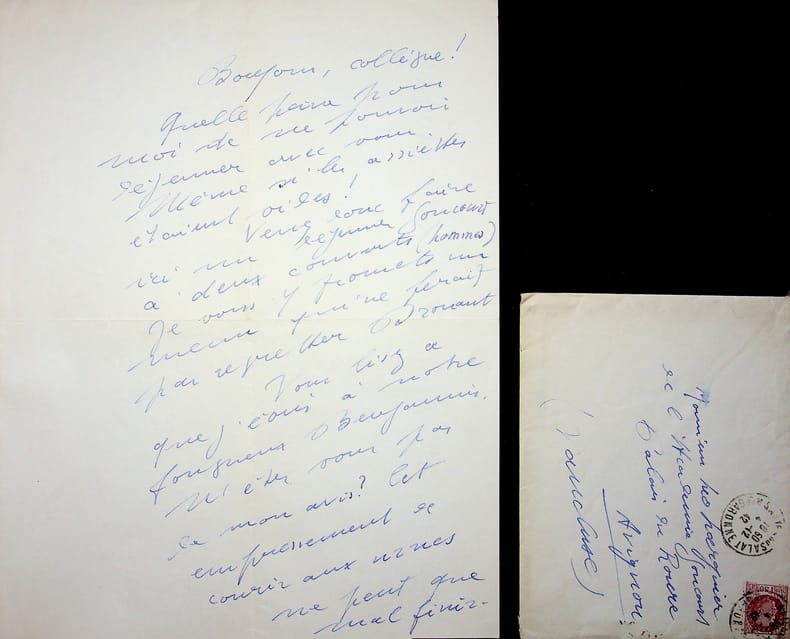 Bonjour, collègue !
Quelle peine pour
moi de ne pouvoir
déjeuner avec vous.
Même si les assiettes
étaient vides !
Venez donc faire
ici un déjeuner Goncourt
à deux couverts (hommes)
Je vous y promets un
menu qui ne ferait
pas regretter Drouant
Vous lisez ce
que j'écris à notre
fougueux Benjamin.
N'êtes vous pas
de mon avis ? Cet
empressement de
courir aux urnes
ne peut que
mal finir.
Monsieur
de l'Académie Goncourt
Palais du Roure
Avignon
(Vaucluse)